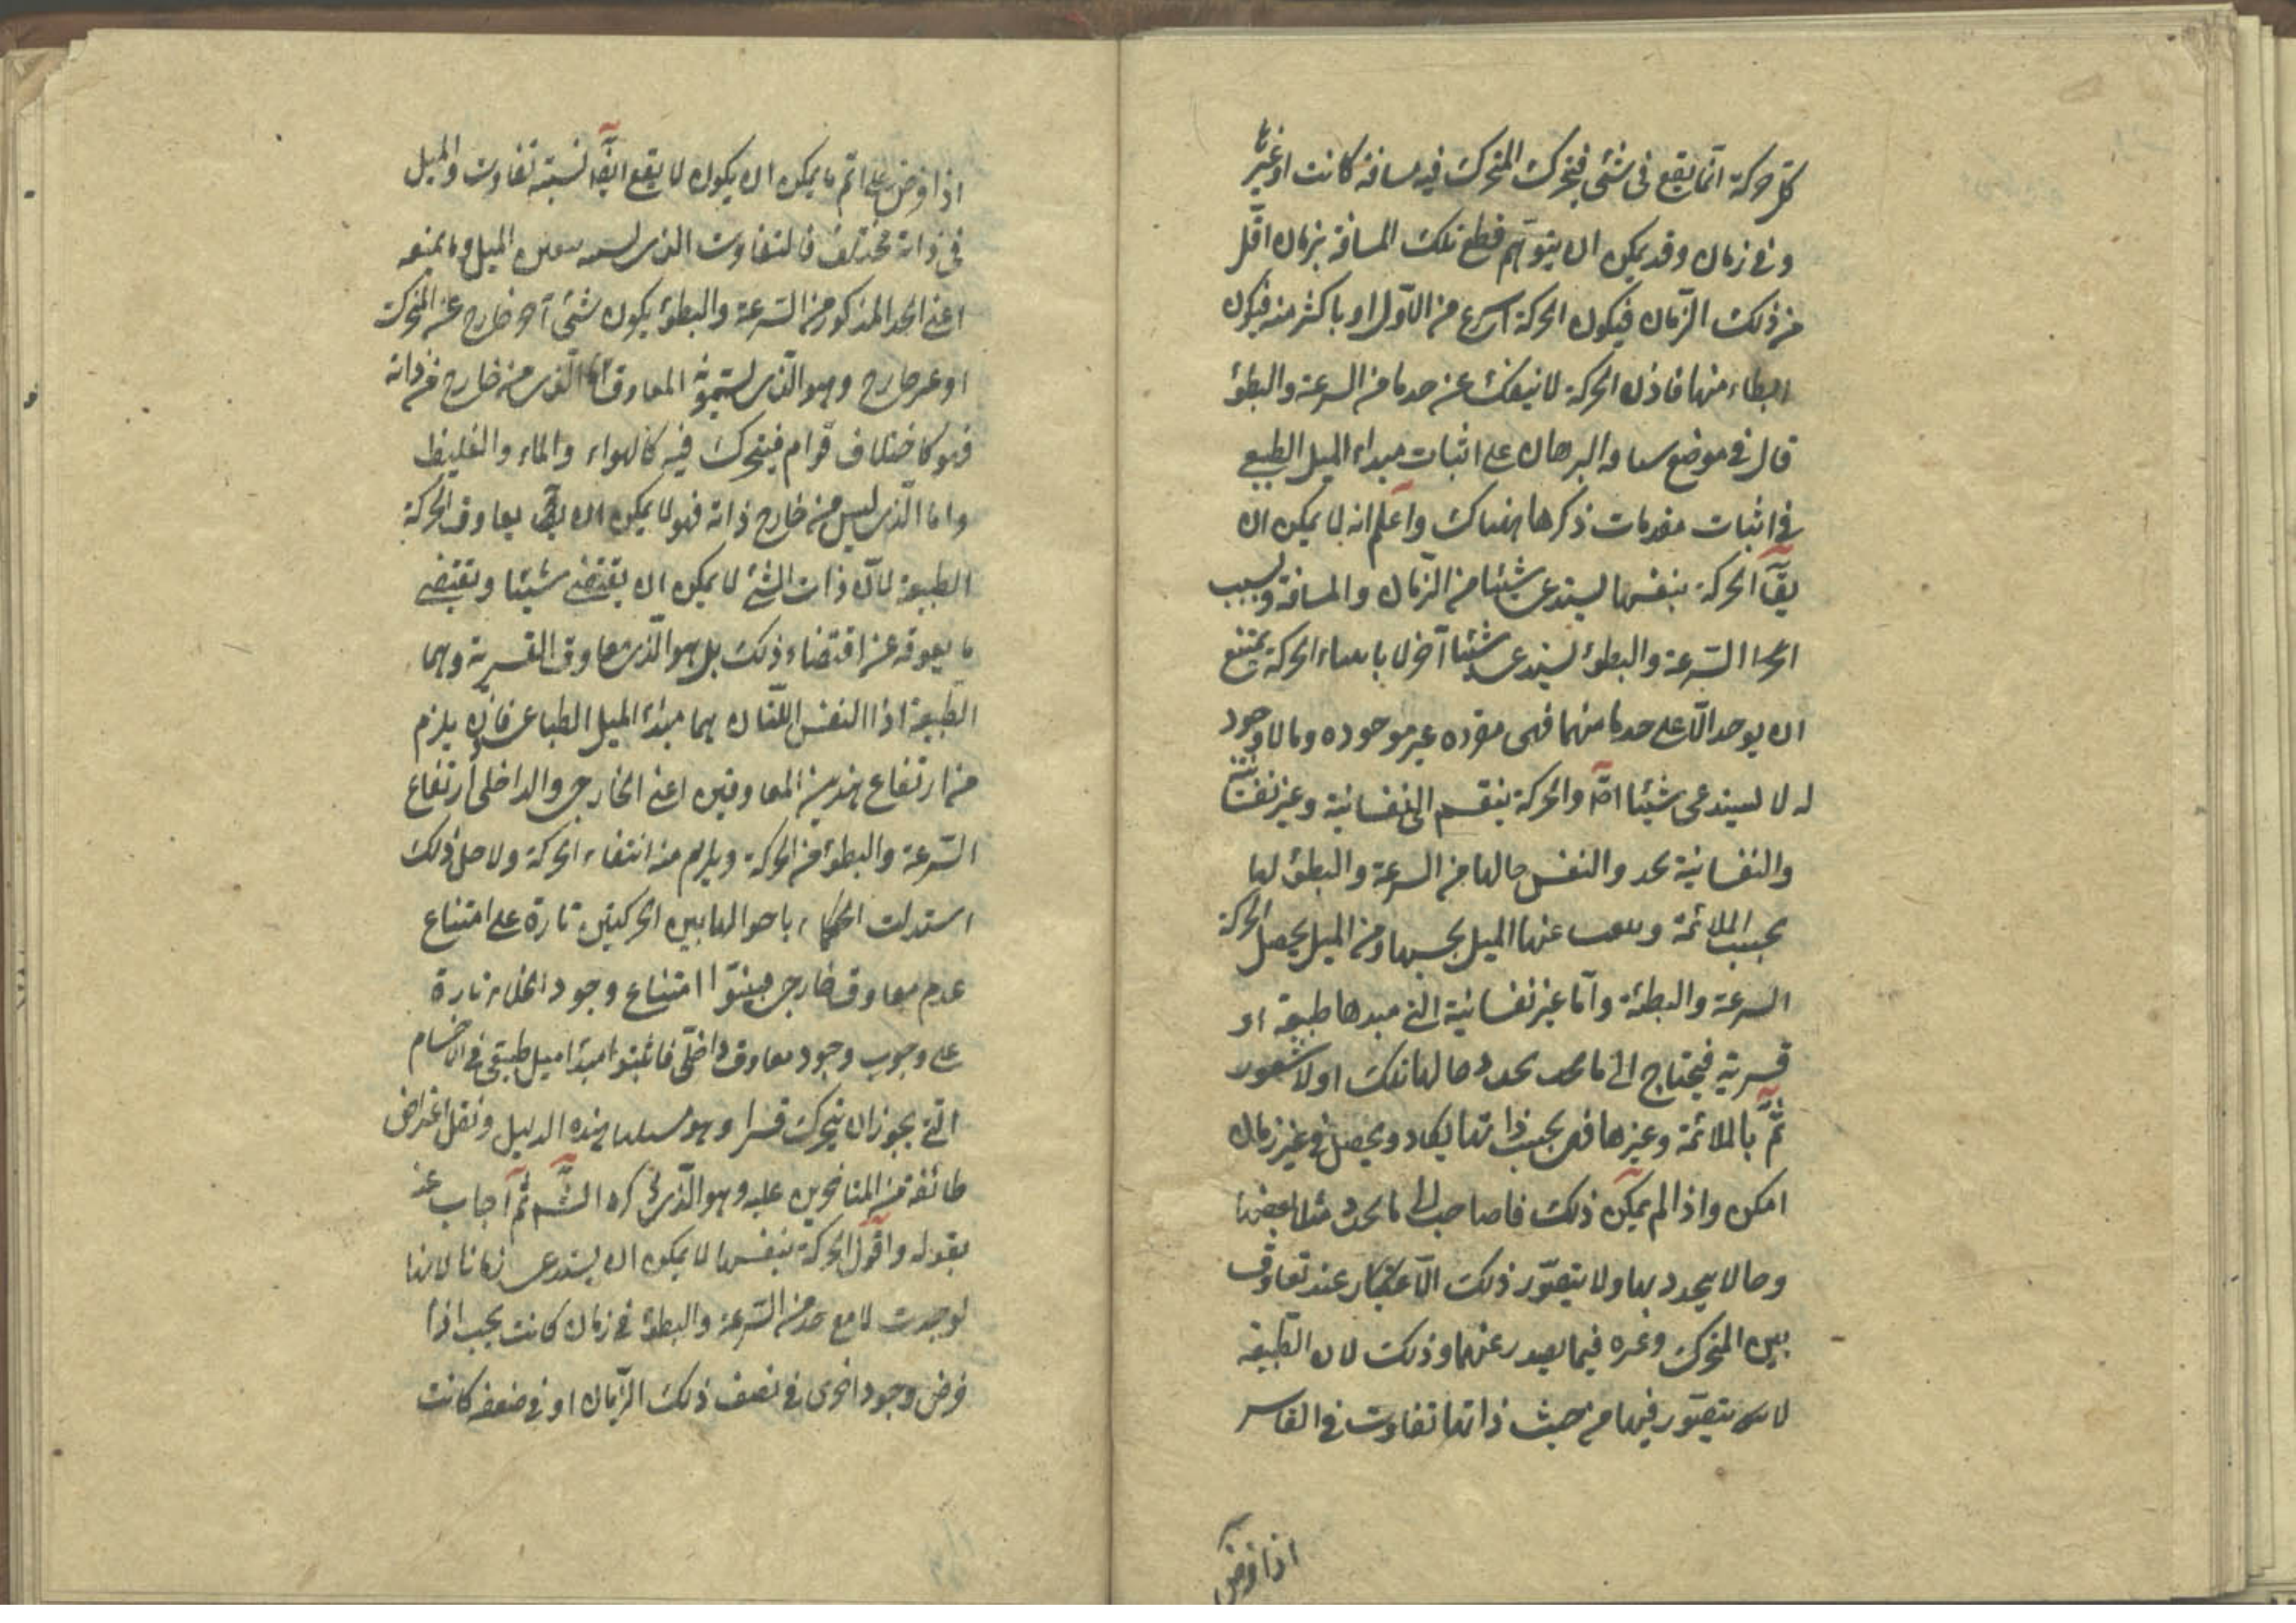 كل حركة انما يقع فى شئ فيتحرك المتحرك فيه مسافة كانت او غيرها
وفى زمان وقد يمكن ان يتوهم قطع تلك المسافة بزمان اقل
من ذلك الزمان فيكون الحركة اسرع من الاول او باكثر منه فيكون
ابطاء منها فاذن الحركة لا ينفك عن حد ما من السرعة والبطؤ
قال فى موضع والبرهان على اثبات مبداء الميل الطبيعى
فى اثبات مقدمات ذكرها هناك واعلم انه لا يمكن ان
يق الحركة بنفسها يستدعى شيئا من الزمان والمسافة وبسبب
السرعة والبطؤ يستدعى شيئا آخر لا الحركة يمتنع
ان يوجد الا على حد ما منهما فهى مفرده غير موجوده وما لا وجود
له لا يستدعى شيئا اصلا والحركة ينقسم الى نفسانية وغير نفسانية
والنفسانية يحدد النفس حالها من السرعة والبطؤ لها
بحسب الملائمة وينبعث عنها الميل بحسبها ومن الميل يحصل الحركة
السرعة والبطئة واما غير نفسانية التى مبدها طبيعة او
قسرية فيحتاج الى ما يحدد حالها تلك اذ لا شعور
ثم بالملائمة وغيرها فهى بحسب ذاتها يكاد ويحصل فى غير زمان
امكن واذا لم يمكن ذلك فاحتاجت الى ما يحدد
وحالا يتحدد بها ولا يتصور ذلك الا عند تعاوق
بين المتحرك وغيره فيما يصدر عنهما وذلك لان الطبيعة
لا يتصور فيها من حيث ذاتها تفاوت فى القاسر
اذا فرض
اذا فرض على اتم ما يمكن ان يكون لا يقع ايضا نسبته تفاوت والميل
فى ذاته مختلف فالتفاوت الذى الميل وما يتبعه
اعنى الحد المذكور من السرعة والبطؤ يكون شئ آخر خارج عن المتحرك
او غير خارج وهو الذى يسمونه المعاوق اما الذى من خارج من ذاته
فهو كاختلاف قوام فيتحرك فيه كالهواء والماء والغليظ
واما الذى ليس من خارج ذاته فهو لا يمكن ان يق يعاوق الحركة
الطبيعة لان ذات الشئ لا يمكن ان يقتضى شيئا ويقتضى
ما يعوقه عن اقتضاء ذلك بل هو الذى يعاوق القسرية وهما
الطبيعة اذا النفس اللتان هما مبدء الميل الطباعى فاذن يلزم
من ارتفاع هذين المعاوقين اعنى الخارجى والداخلى ارتفاع
السرعة والبطؤ من الحركة ويلزم منه انتفاء الحركة ولاجل ذلك
استدلت الحكماء باحوال هاتين الحركتين تارة على امتناع
عدم معاوق خارجى فبينوا امتناع وجود الخلاء وتارة
على وجوب وجود معاوق داخلى فاثبتوا مبدا ميل طبيعى فى الاجسام
التى يجوز ان يتحرك قسرا وهو هذه الدليل ونقل اعتراض
طائفة من المتاخرين عليه وهو الذى ذكره الشم ثم اجاب عنه
بقوله واقول الحركة بنفسها لا يمكن ان يستدعى زمانا لانها
لو وجدت لا مع حد من السرعة والبطؤ فى زمان كانت بحيث اذا
فرض وجود اخرى فى نصف ذلك الزمان او فى ضعفه كانت